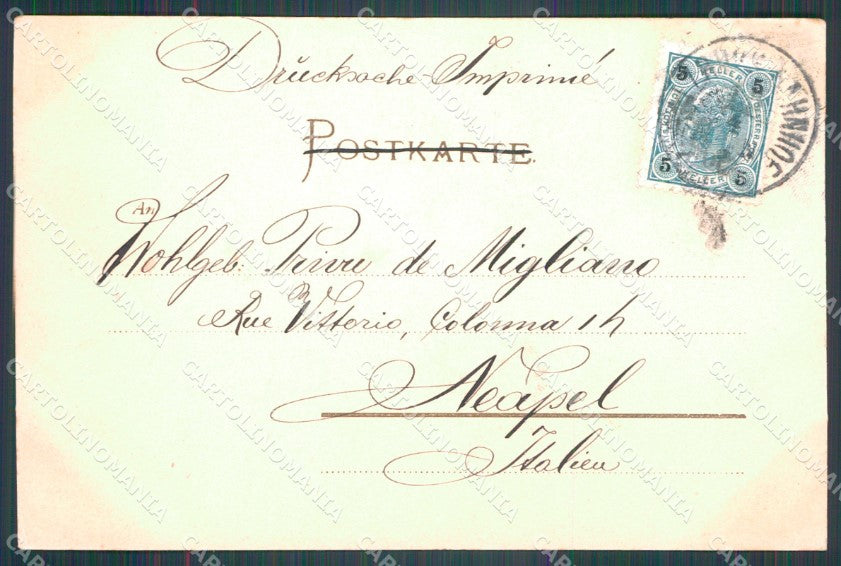 Drucksache-Imprimé
POSTKARTE.
An
Wohlgeb: Privu de Migliano
Rue Vittorio, Colonna 14
Neapel
Italien
5 HELLER 5
5 HELLER 5
CARTOLINOMANIA